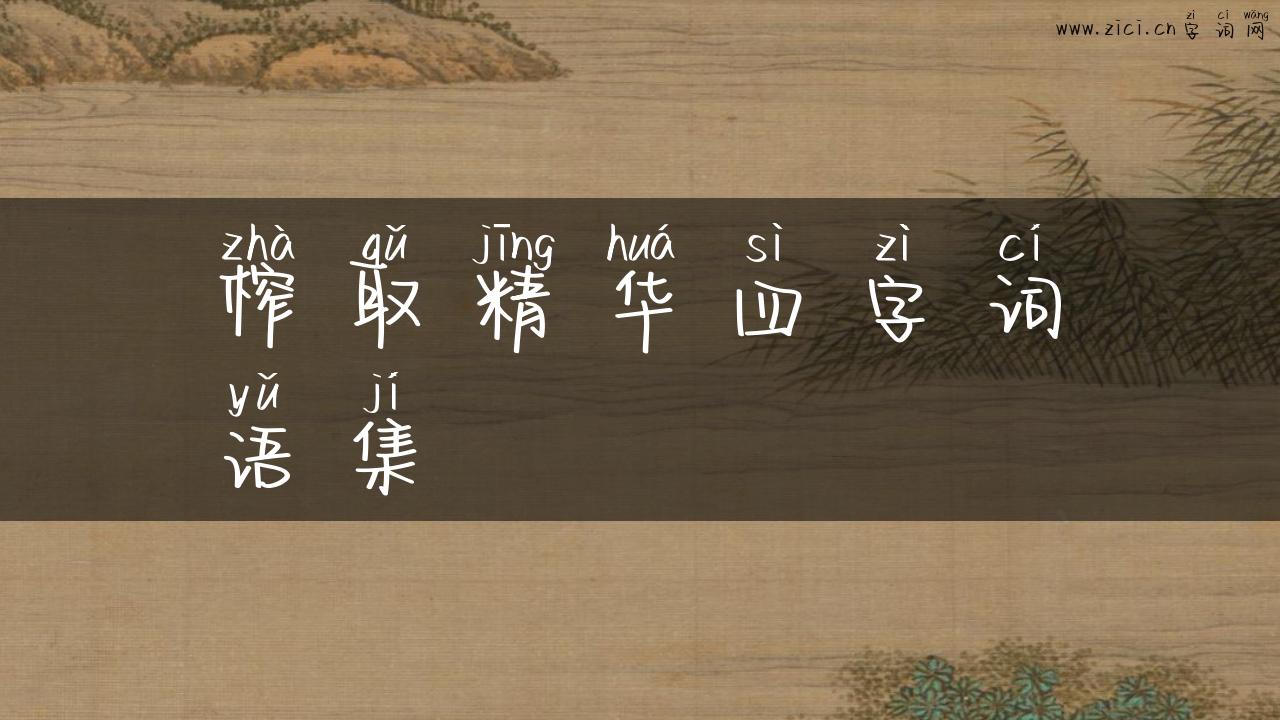 zì cí wǎng
www.zici.cn 字词网
zhà qǔ jīng huá sì zì cí
榨取精华四字词
yǔ jí
语集